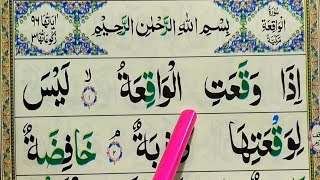 سورة الواقعة
بِسْمِ اللهِ الرَّحْمٰنِ الرَّحِيْمِ
اٰياتها ٩٦
ركوعاتها ٣
اِذَا وَقَعَتِ الْوَاقِعَةُ ۙ ١ لَيْسَ
لِوَقْعَتِهَا ذِبَةٌ ۘ ٢ خَافِضَةٌ